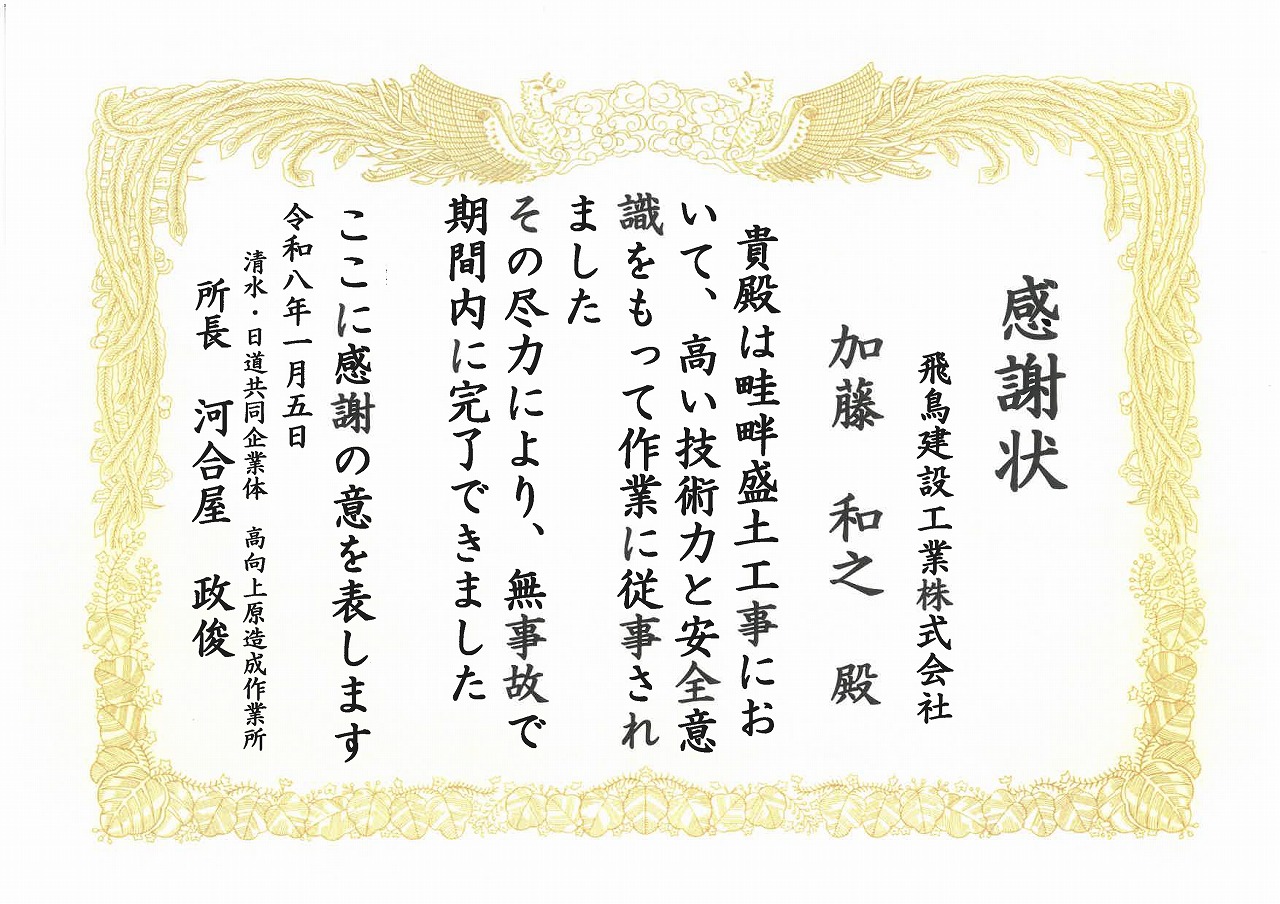 感謝状
飛鳥建設工業株式会社
加藤　和之　殿
貴殿は畦畔盛土工事にお
いて、高い技術力と安全意
識をもって作業に従事され
ました
その尽力により、無事故で
期間内に完了できました
ここに感謝の意を表します
令和八年一月五日
清水・日道共同企業体　高向上原造成作業所
所長　河合屋　政俊